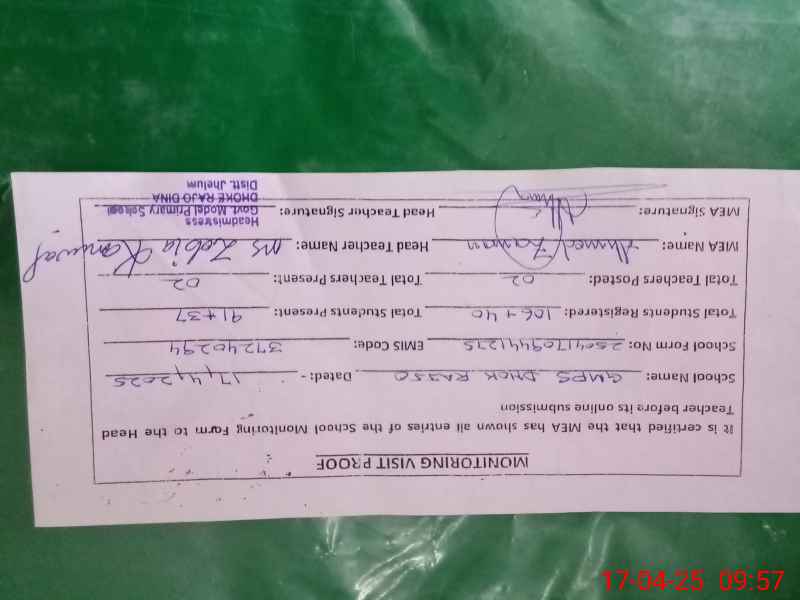 MONITORING VISIT PROOF
It is certified that the MEA has shown all entries of the School Monitoring Farm to the Head
Teacher before its online submission
School Name: GMPS DHOK RAJJO Dated: - 17,4,2025
School Form No: EMIS Code: 37240294
Total Students Registered: 106+40 Total Students Present: 91+37
Total Teachers Posted: 02 Total Teachers Present: 02
MEA Name: Ahmed Zaman Head Teacher Name: Ms Zobia Kanwal
MEA Signature: Head Teacher Signature:
Headmistress
Govt. Model Primary School
DHOKE RAJO DINA
Distt. Jhelum
17-04-25 09:57